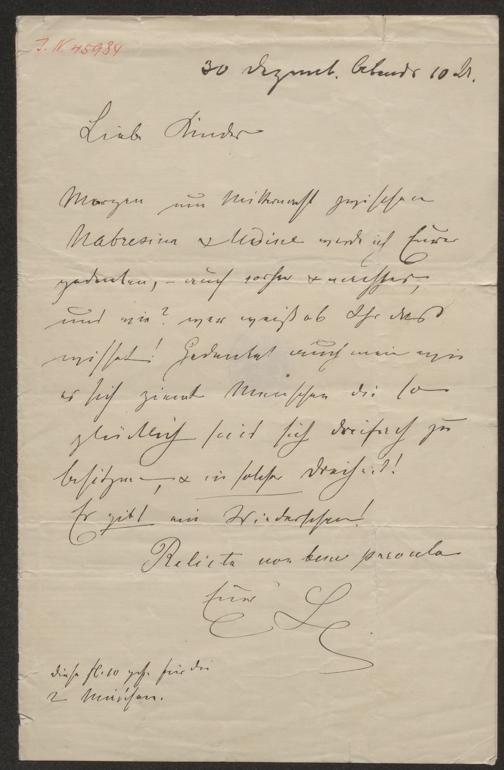 I. N. 45984
30 Dezemb. Abends 10 U.
Liebe Kinder
Morgen um Mitternacht zwischen
Nabresina & Udine werde ich Eurer
gedenken, – auch vorher & nachher,
und wie? wer weiß ob Ihr das
wisset! Gedenket auch mein wie
es sich ziemt Menschen die so
glücklich sind sich dreifach zu
besitzen, & in solcher Dreiheit!
Er gibt ein Wiedersehen!
Relicta non bene parmula
Euer L
diese fl. 10 für die
2 Mädchen.